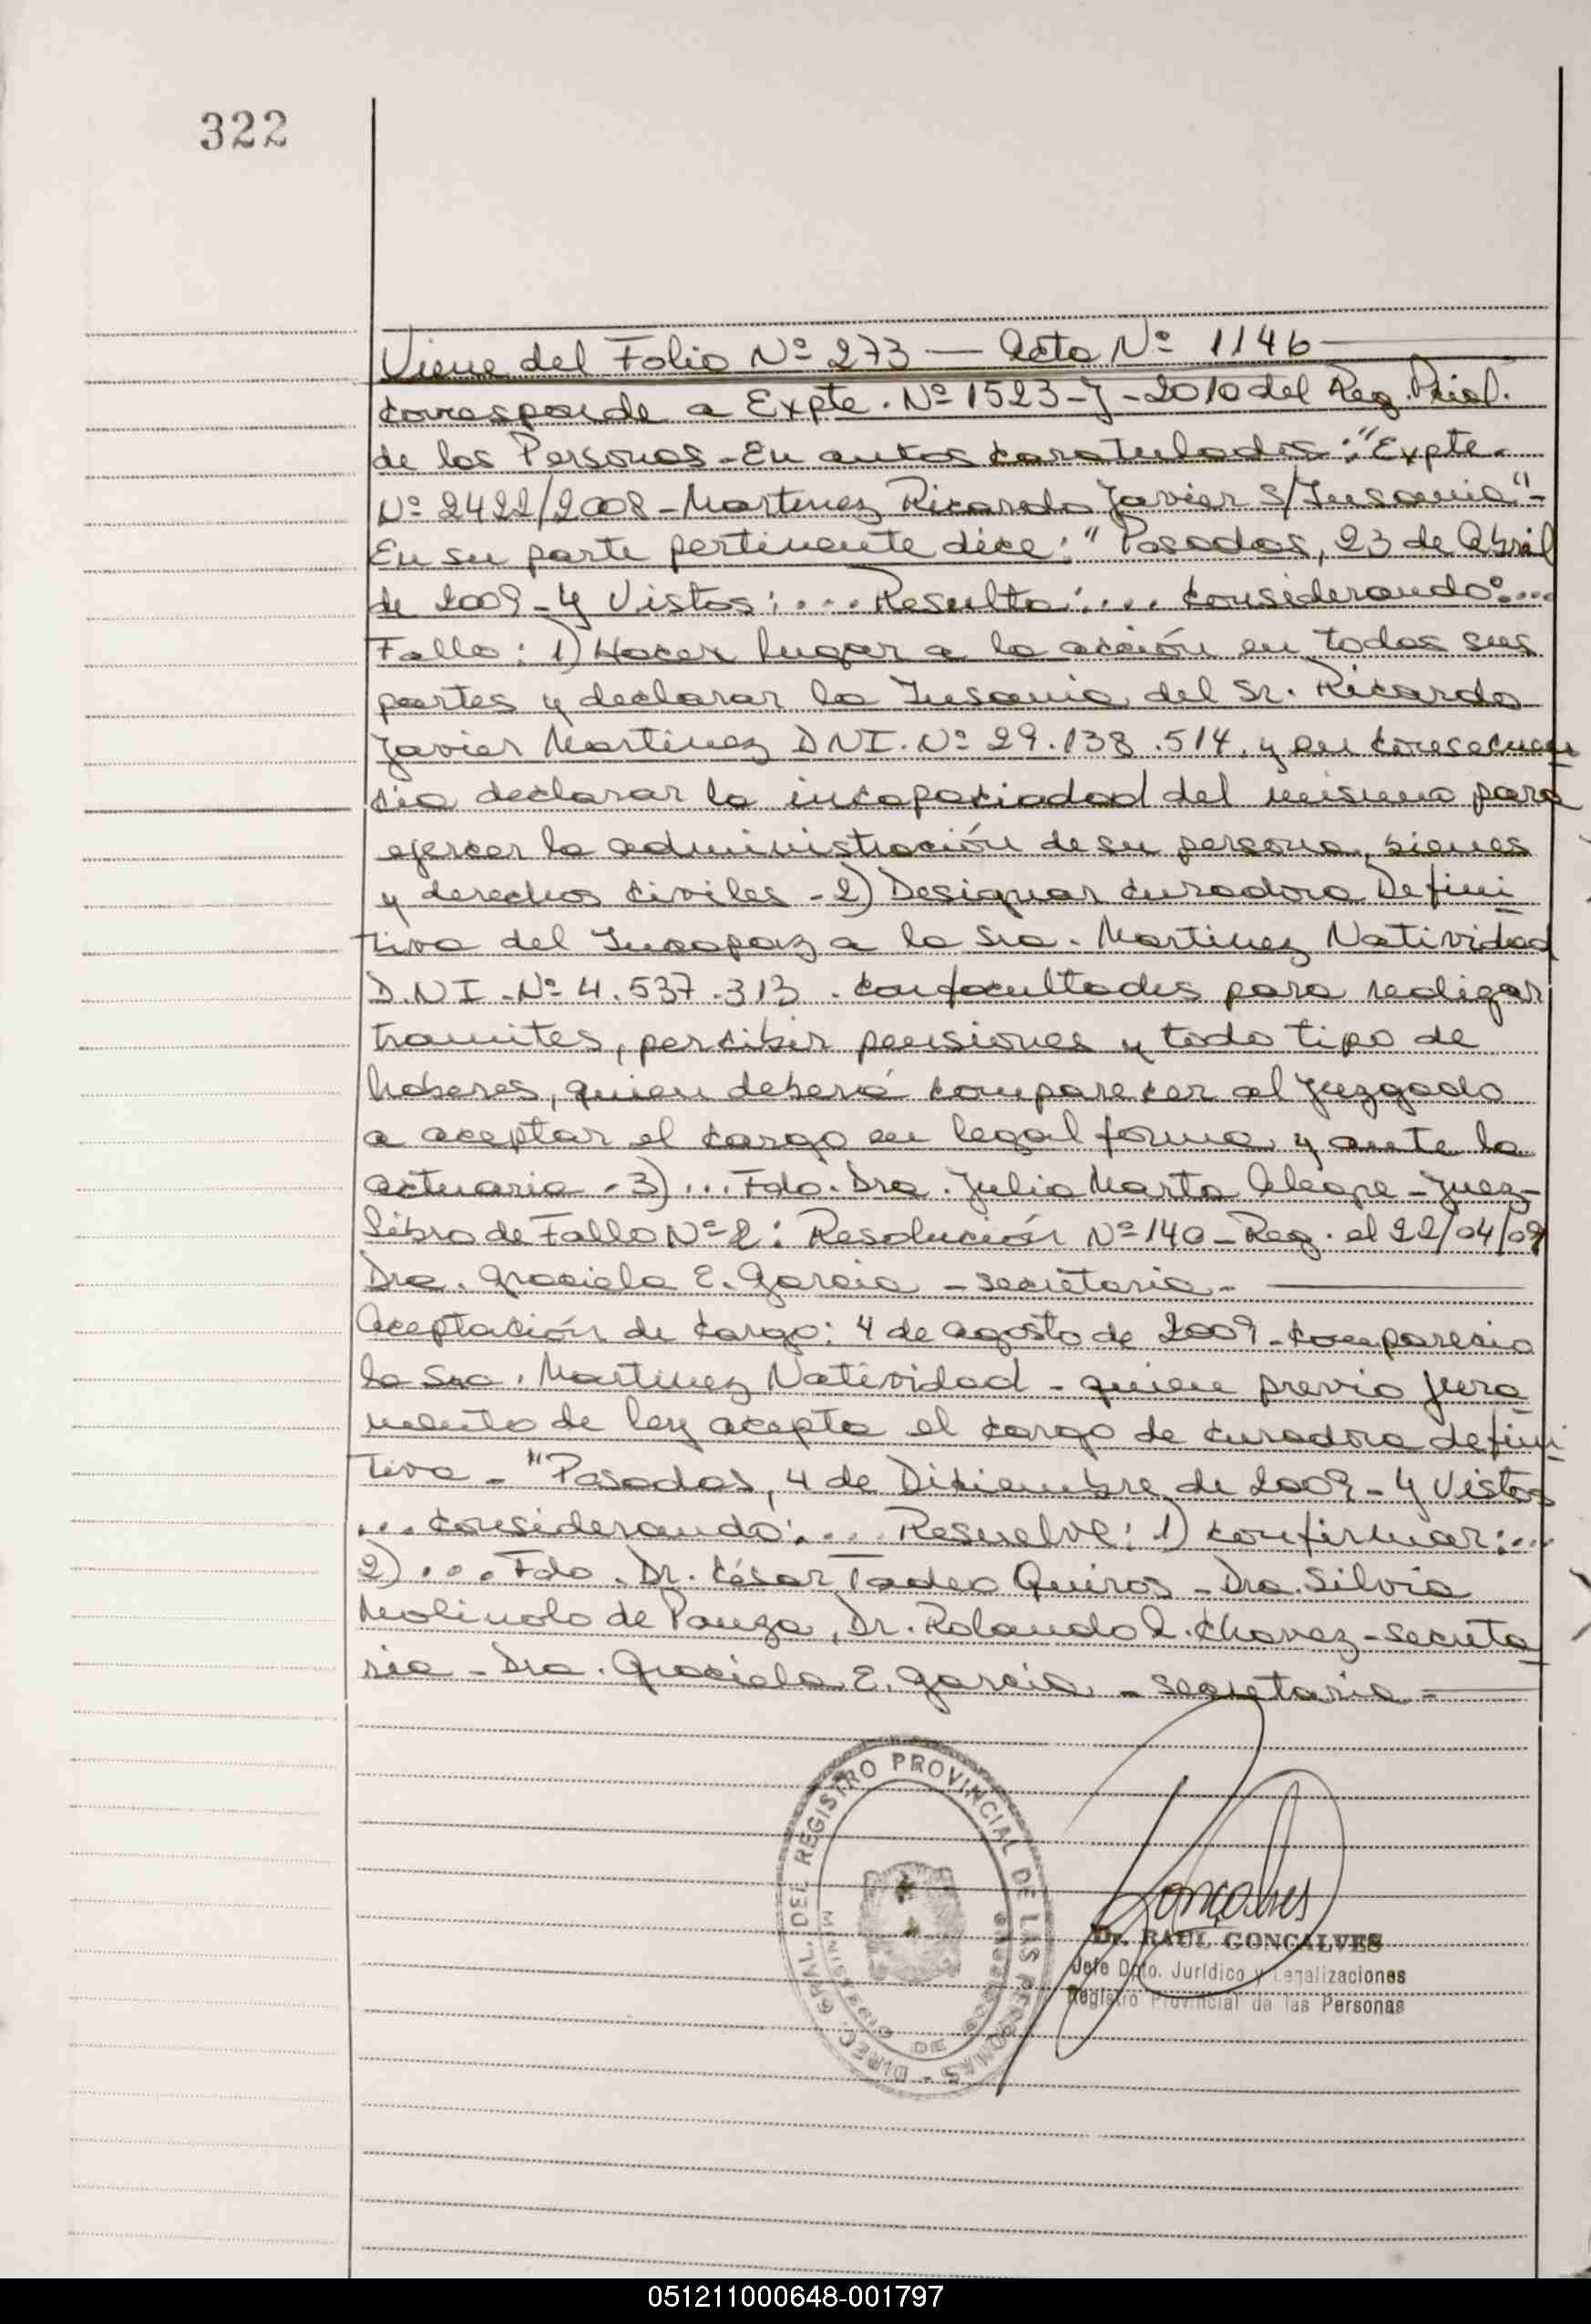 322
Viene del Folio Nº 273 — Acta Nº 1146
corresponde a Expte. Nº 1523-J-2010 del Reg. Prial.
de las Personas - En autos caratulados: "Expte.
Nº 2422/2008 - Martinez Ricardo Javier S/Insania"-
En su parte pertinente dice: "Posadas, 23 de Abril
de 2009 - Y Vistos: .... Resulta: .... Considerando: ...
Fallo: 1) Hacer lugar a la acción en todas sus
partes y declarar la Insania del Sr. Ricardo
Javier Martinez DNI. Nº 29.138.514, y en consecuen
cia declarar la incapaciadad del mismo para
ejercer la administración de su persona, bienes
y derechos civiles - 2) Designar curadora Defini
tiva del Incapaz a la Sra. Martinez Natividad
D.N.I. Nº 4.537.313 . con facultades para realizar
tramites, percibir pensiones y todo tipo de
haberes, quien deberá comparecer al Juzgado
a aceptar el cargo en legal forma y ante la
actuaria - 3) ... Fdo. Dra. Julia Marta - Juez -
Libro de Fallo Nº 2: Resolución Nº 140 - Reg. el 22/04/09
Dra. Graciela E. Garcia - secretaria -
Aceptación de cargo: 4 de agosto de 2009 - comparecio
la Sra. Martinez Natividad - quien previo jura
mento de ley acepta el cargo de curadora defini
tiva - "Posadas, 4 de Diciembre de 2009 - Y Vistos
... considerando: .... Resuelve: 1) confirmar: ...
2) .... Fdo. Dr. César Tadeo Quiros - Dra. Silvia
Molinolo de Panza, Dr. Rolando Chavez - secreta
ria - Dra. Graciela E. Garcia - secretaria -
DIREC. GRAL. DEL REGISTRO PROVINCIAL DE LAS PERSONAS -
MINISTERIO DE GOBIERNO
Goncalves
Dr. RAUL GONCALVES
Jefe Dpto. Jurídico y Legalizaciones
Registro Provincial de las Personas
051211000648-001797